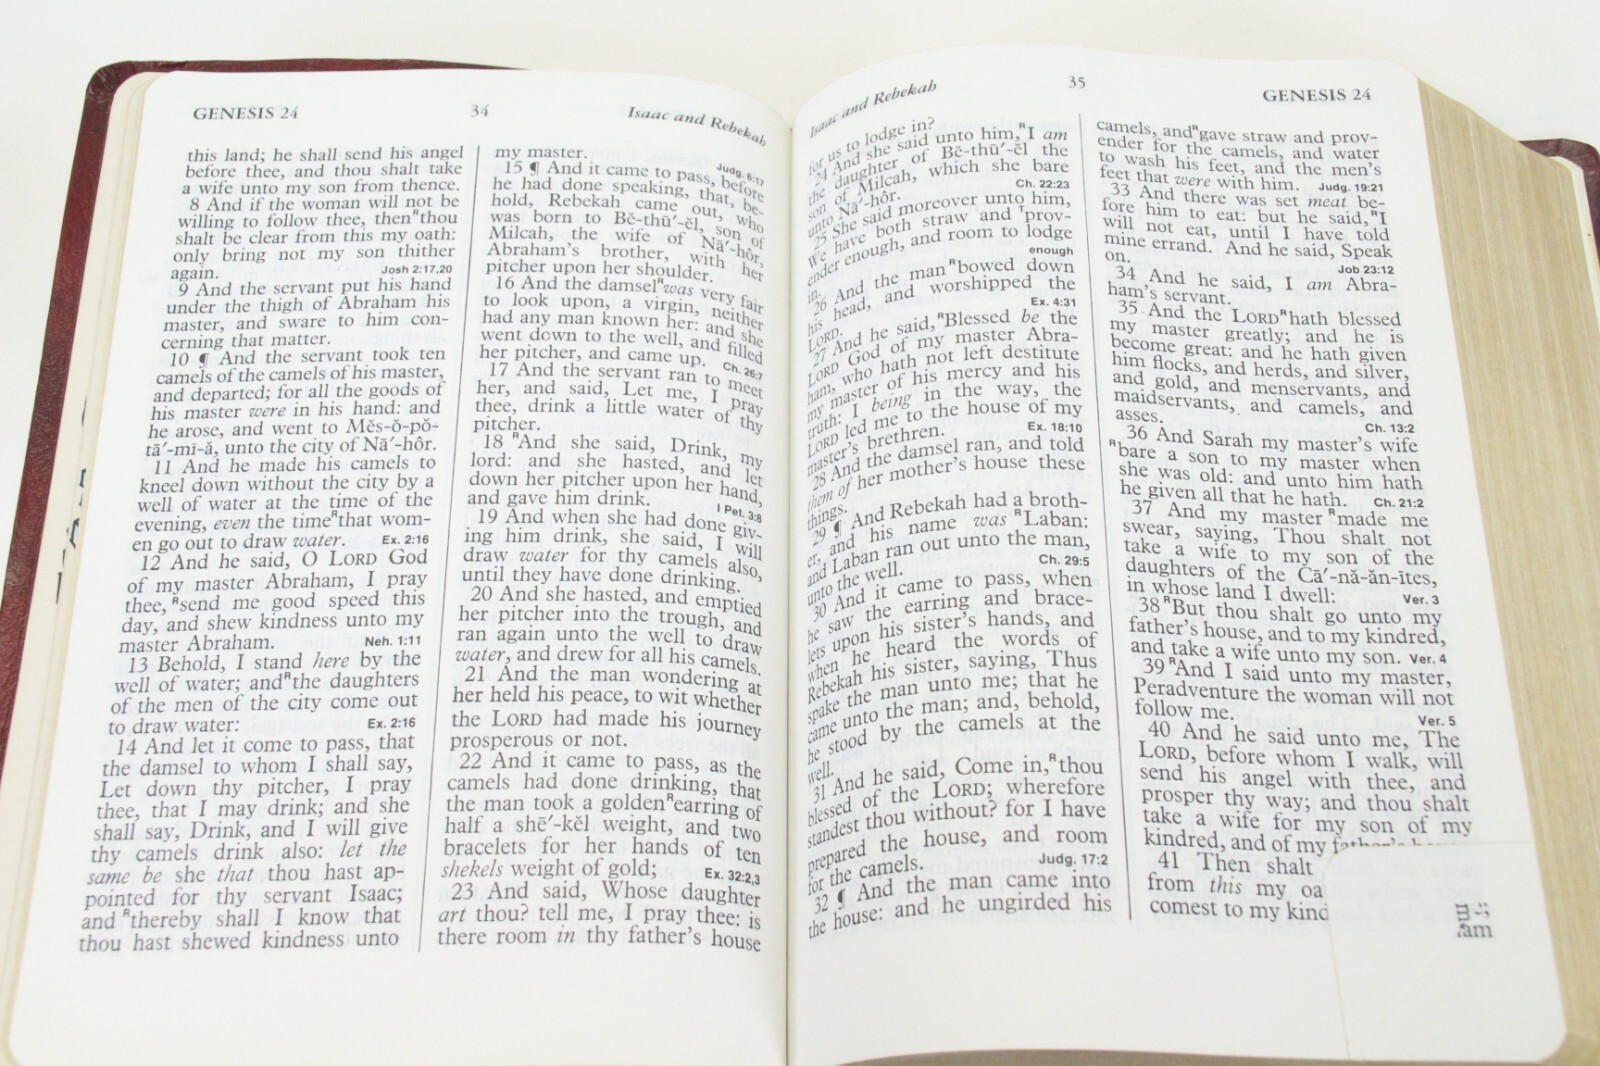 GENESIS 24
34
Isaac and Rebekah
this land; he shall send his angel
before thee, and thou shalt take
a wife unto my son from thence.
8 And if the woman will not be
willing to follow thee, then ᴿthou
shalt be clear from this my oath:
only bring not my son thither
again. Josh 2:17,20
9 And the servant put his hand
under the thigh of Abraham his
master, and sware to him con-
cerning that matter.
10 ¶ And the servant took ten
camels of the camels of his master,
and departed; for all the goods of
his master were in his hand: and
he arose, and went to Mĕs-ŏ-pŏ-
tā′-mĭ-ă, unto the city of Nā′-hôr.
11 And he made his camels to
kneel down without the city by a
well of water at the time of the
evening, even the time ᴿthat wom-
en go out to draw water. Ex. 2:16
12 And he said, O LORD God
of my master Abraham, I pray
thee, ᴿsend me good speed this
day, and shew kindness unto my
master Abraham. Neh. 1:11
13 Behold, I stand here by the
well of water; and ᴿthe daughters
of the men of the city come out
to draw water: Ex. 2:16
14 And let it come to pass, that
the damsel to whom I shall say,
Let down thy pitcher, I pray
thee, that I may drink; and she
shall say, Drink, and I will give
thy camels drink also: let the
same be she that thou hast ap-
pointed for thy servant Isaac;
and ᴿthereby shall I know that
thou hast shewed kindness unto
my master. Judg. 6:17
15 ¶ And it came to pass, before
he had done speaking, that, be-
hold, Rebekah came out, who
was born to Bĕ-thū′-ĕl, son of
Milcah, the wife of Nā′-hôr,
Abraham's brother, with her
pitcher upon her shoulder.
16 And the damsel ᴿwas very fair
to look upon, a virgin, neither
had any man known her: and she
went down to the well, and filled
her pitcher, and came up. Ch. 26:7
17 And the servant ran to meet
her, and said, Let me, I pray
thee, drink a little water of thy
pitcher.
18 ᴿAnd she said, Drink, my
lord: and she hasted, and let
down her pitcher upon her hand,
and gave him drink. I Pet. 3:8
19 And when she had done giv-
ing him drink, she said, I will
draw water for thy camels also,
until they have done drinking.
20 And she hasted, and emptied
her pitcher into the trough, and
ran again unto the well to draw
water, and drew for all his camels.
21 And the man wondering at
her held his peace, to wit whether
the LORD had made his journey
prosperous or not.
22 And it came to pass, as the
camels had done drinking, that
the man took a golden ᴿearring of
half a shē′-kĕl weight, and two
bracelets for her hands of ten
shekels weight of gold; Ex. 32:2,3
23 And said, Whose daughter
art thou? tell me, I pray thee: is
there room in thy father's house
Isaac and Rebekah
35
GENESIS 24
for us to lodge in?
24 And she said unto him, ᴿI am
the daughter of Bĕ-thū′-ĕl the
son of Milcah, which she bare
unto Nā′-hôr. Ch. 22:23
25 She said moreover unto him,
We have both straw and ᵀprov-
ender enough, and room to lodge
in. enough
26 And the man ᴿbowed down
his head, and worshipped the
LORD. Ex. 4:31
27 And he said, ᴿBlessed be the
LORD God of my master Abra-
ham, who hath not left destitute
my master of his mercy and his
truth: I being in the way, the
LORD led me to the house of my
master's brethren. Ex. 18:10
28 And the damsel ran, and told
them of her mother's house these
things.
29 ¶ And Rebekah had a broth-
er, and his name was ᴿLaban:
and Laban ran out unto the man,
unto the well. Ch. 29:5
30 And it came to pass, when
he saw the earring and brace-
lets upon his sister's hands, and
when he heard the words of
Rebekah his sister, saying, Thus
spake the man unto me; that he
came unto the man; and, behold,
he stood by the camels at the
well.
31 And he said, Come in, ᴿthou
blessed of the LORD; wherefore
standest thou without? for I have
prepared the house, and room
for the camels. Judg. 17:2
32 ¶ And the man came into
the house: and he ungirded his
camels, and ᴿgave straw and prov-
ender for the camels, and water
to wash his feet, and the men's
feet that were with him. Judg. 19:21
33 And there was set meat be-
fore him to eat: but he said, ᴿI
will not eat, until I have told
mine errand. And he said, Speak
on. Job 23:12
34 And he said, I am Abra-
ham's servant.
35 And the LORD ᴿhath blessed
my master greatly; and he is
become great: and he hath given
him flocks, and herds, and silver,
and gold, and menservants, and
maidservants, and camels, and
asses. Ch. 13:2
36 And Sarah my master's wife
ᴿbare a son to my master when
she was old: and unto him hath
he given all that he hath. Ch. 21:2
37 And my master ᴿmade me
swear, saying, Thou shalt not
take a wife to my son of the
daughters of the Cā′-nă-ăn-ītes,
in whose land I dwell: Ver. 3
38 ᴿBut thou shalt go unto my
father's house, and to my kindred,
and take a wife unto my son. Ver. 4
39 ᴿAnd I said unto my master,
Peradventure the woman will not
follow me. Ver. 5
40 And he said unto me, The
LORD, before whom I walk, will
send his angel with thee, and
prosper thy way; and thou shalt
take a wife for my son of my
kindred, and of my father's
41 Then shalt
from this my oa
comest to my kind